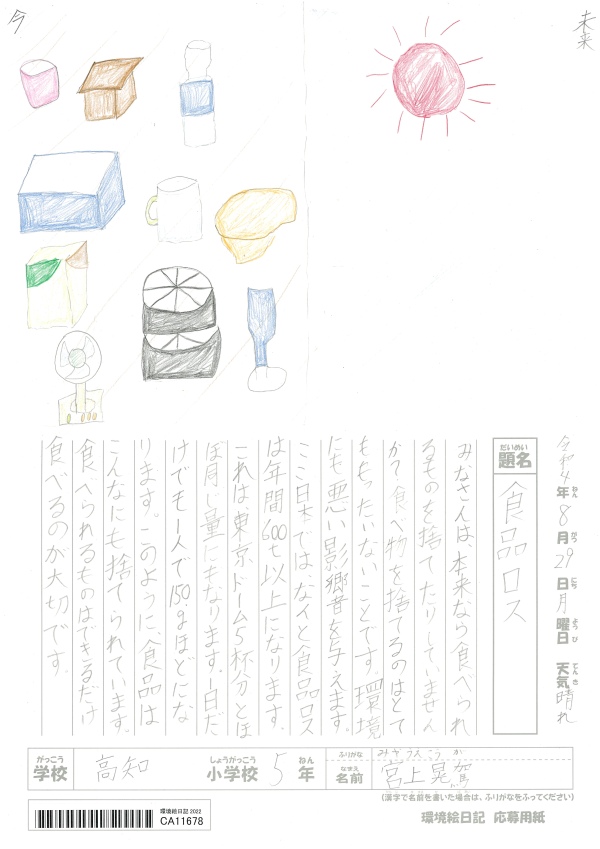 今
未来
令和4年8月29日月曜日 天気晴れ
ねん
がつ
にち
ようび
てんき
だいめい
題名
食品ロス
みなさんは、本来なら食べられ
るものを捨てたりしていません
か？食べ物を捨てるのはとて
ももったいないことです。環境
にも悪い影響を与えます。
ここ日本では、なんと食品ロス
は年間600t以上になります。
これは、東京ドーム5杯分とほ
ぼ同じ量にもなります。1日だ
けでも一人で150gほどにな
ります。このように、食品は
こんなにも捨てられています。
食べられるものはできるだけ
食べるのが大切です。
がっこう
学校
高知
しょうがっこう
小学校
5
ねん
年
ふりがな
みやうえこうが
なまえ
名前
宮上晃駕
（漢字で名前を書いた場合は、ふりがなをふってください）
環境絵日記 2022
CA11678
環境絵日記 応募用紙